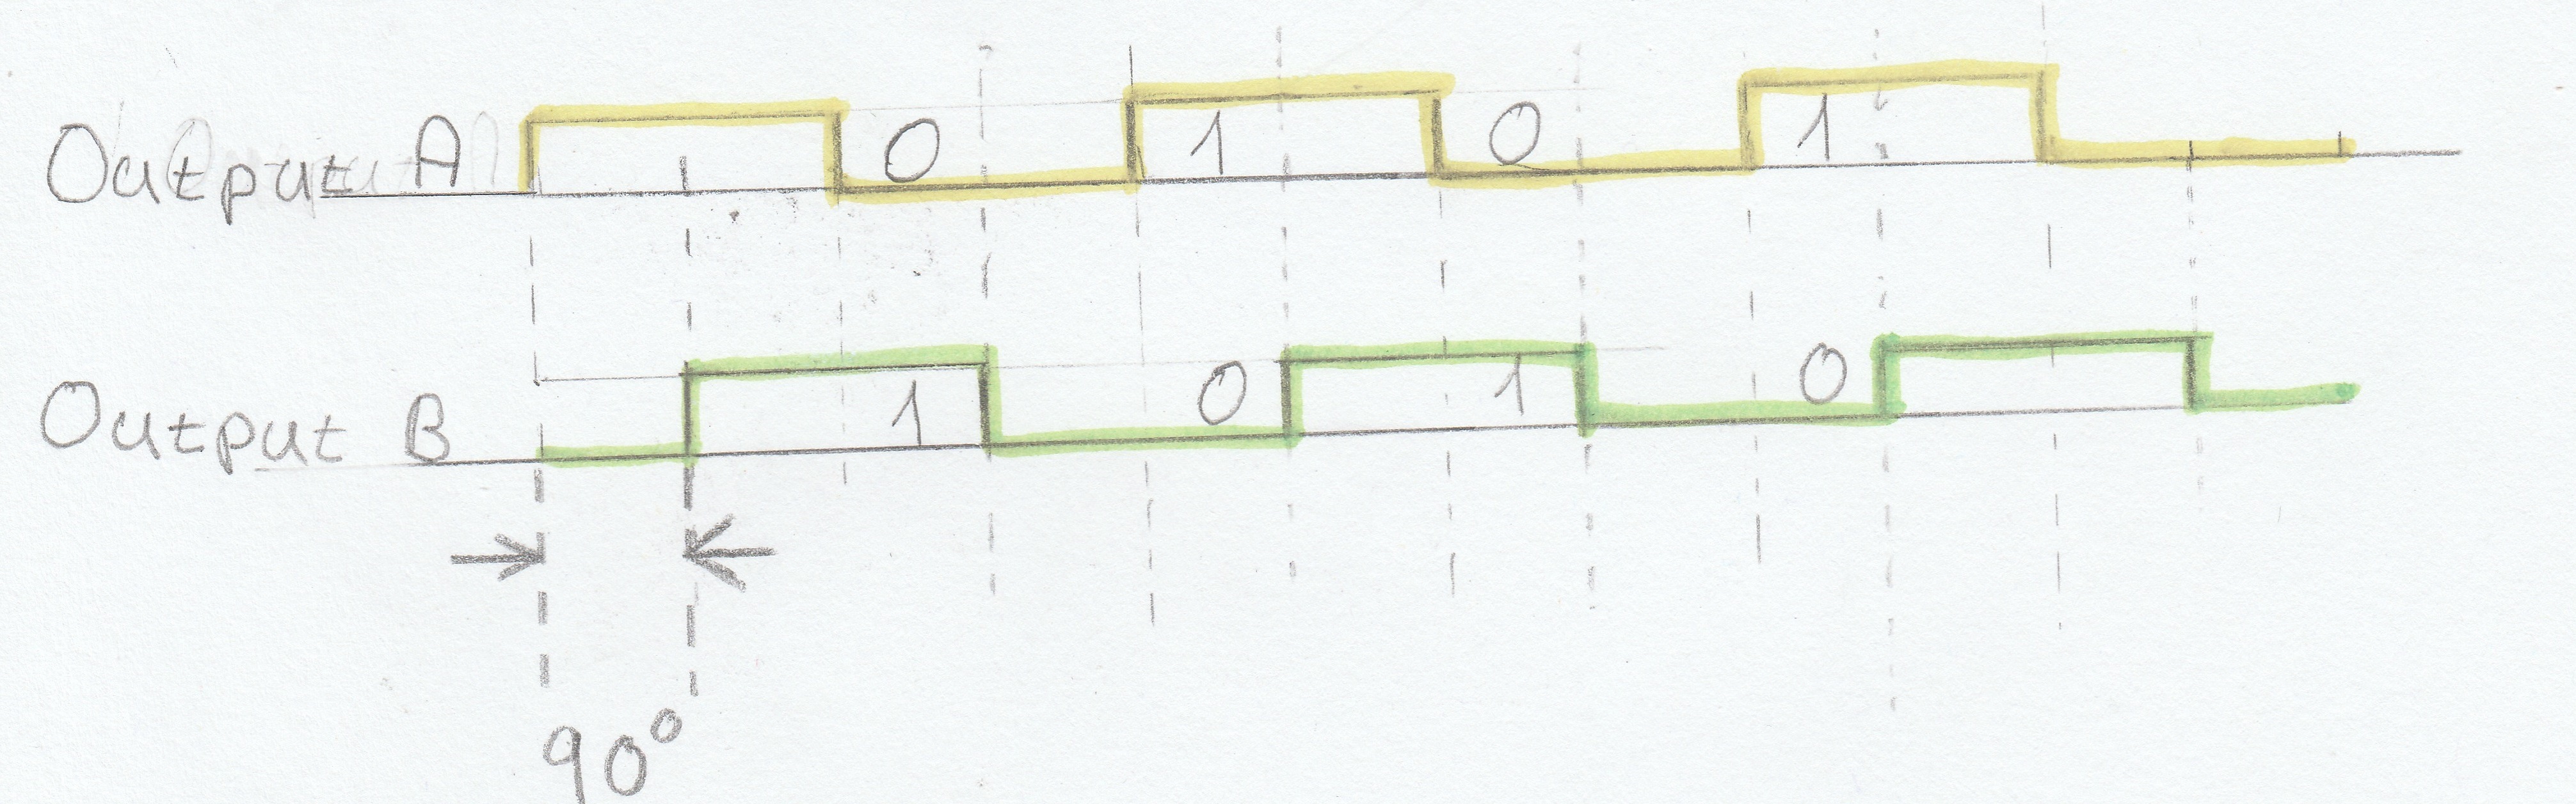 Output A 0 1 0 1
Output B 1 0 1 0
90°